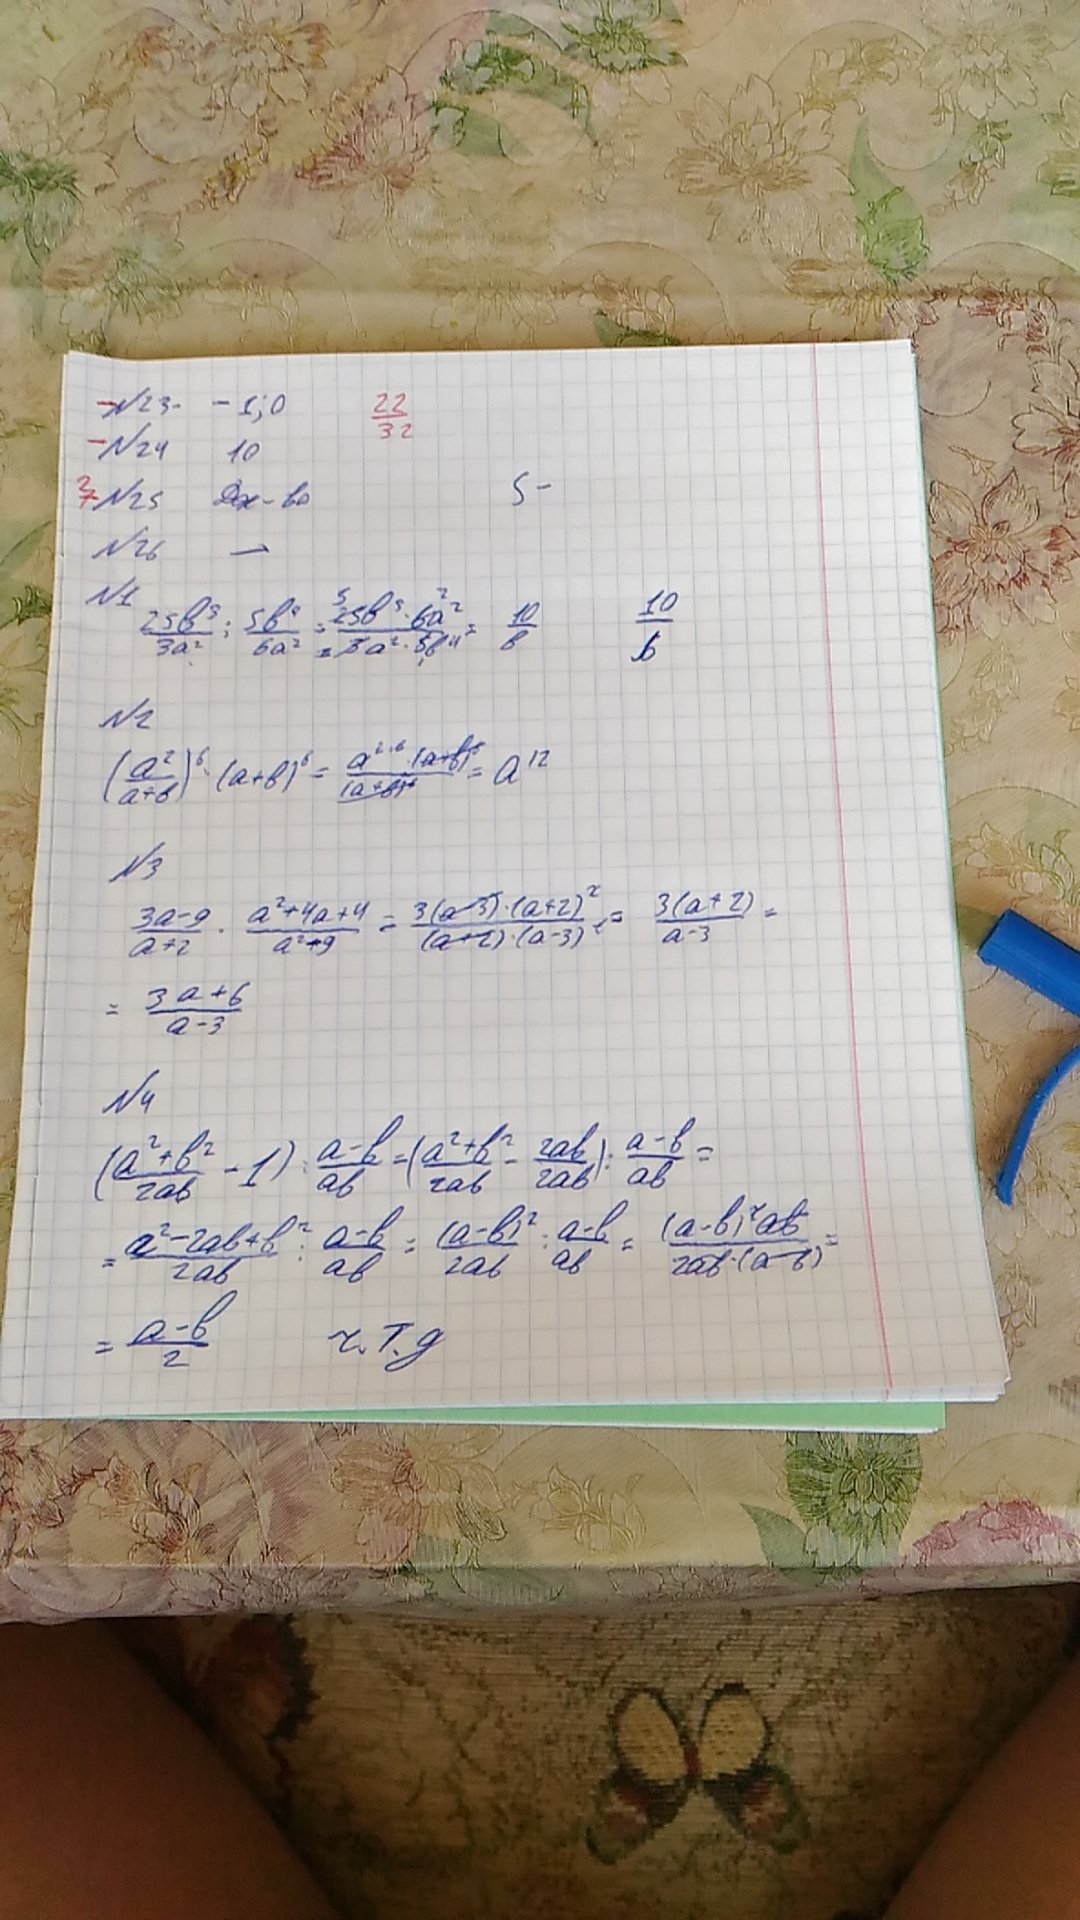 -N23- -1;0 22/32
-N24 10
N25 Док-во 5-
N26 —
N1
25b³/3a² : 5b⁴/6a² = 25b³·6a²/3a²·5b⁴ = 10/b 10/b
N2
(a²/a+b)⁶ · (a+b)⁶ = a²·⁶·(a+b)⁶/(a+b)⁶ = a¹²
N3
3a-9/a+2 · a²+4a+4/a²+9 = 3(a-3)·(a+2)²/(a+2)·(a-3)² = 3(a+2)/a-3 =
= 3a+6/a-3
N4
(a²+b²/2ab - 1) : a-b/ab = (a²+b²/2ab - 2ab/2ab) : a-b/ab =
= a²-2ab+b²/2ab : a-b/ab = (a-b)²/2ab : a-b/ab = (a-b)²ab/2ab·(a-b) =
= a-b/2 ч.т.д